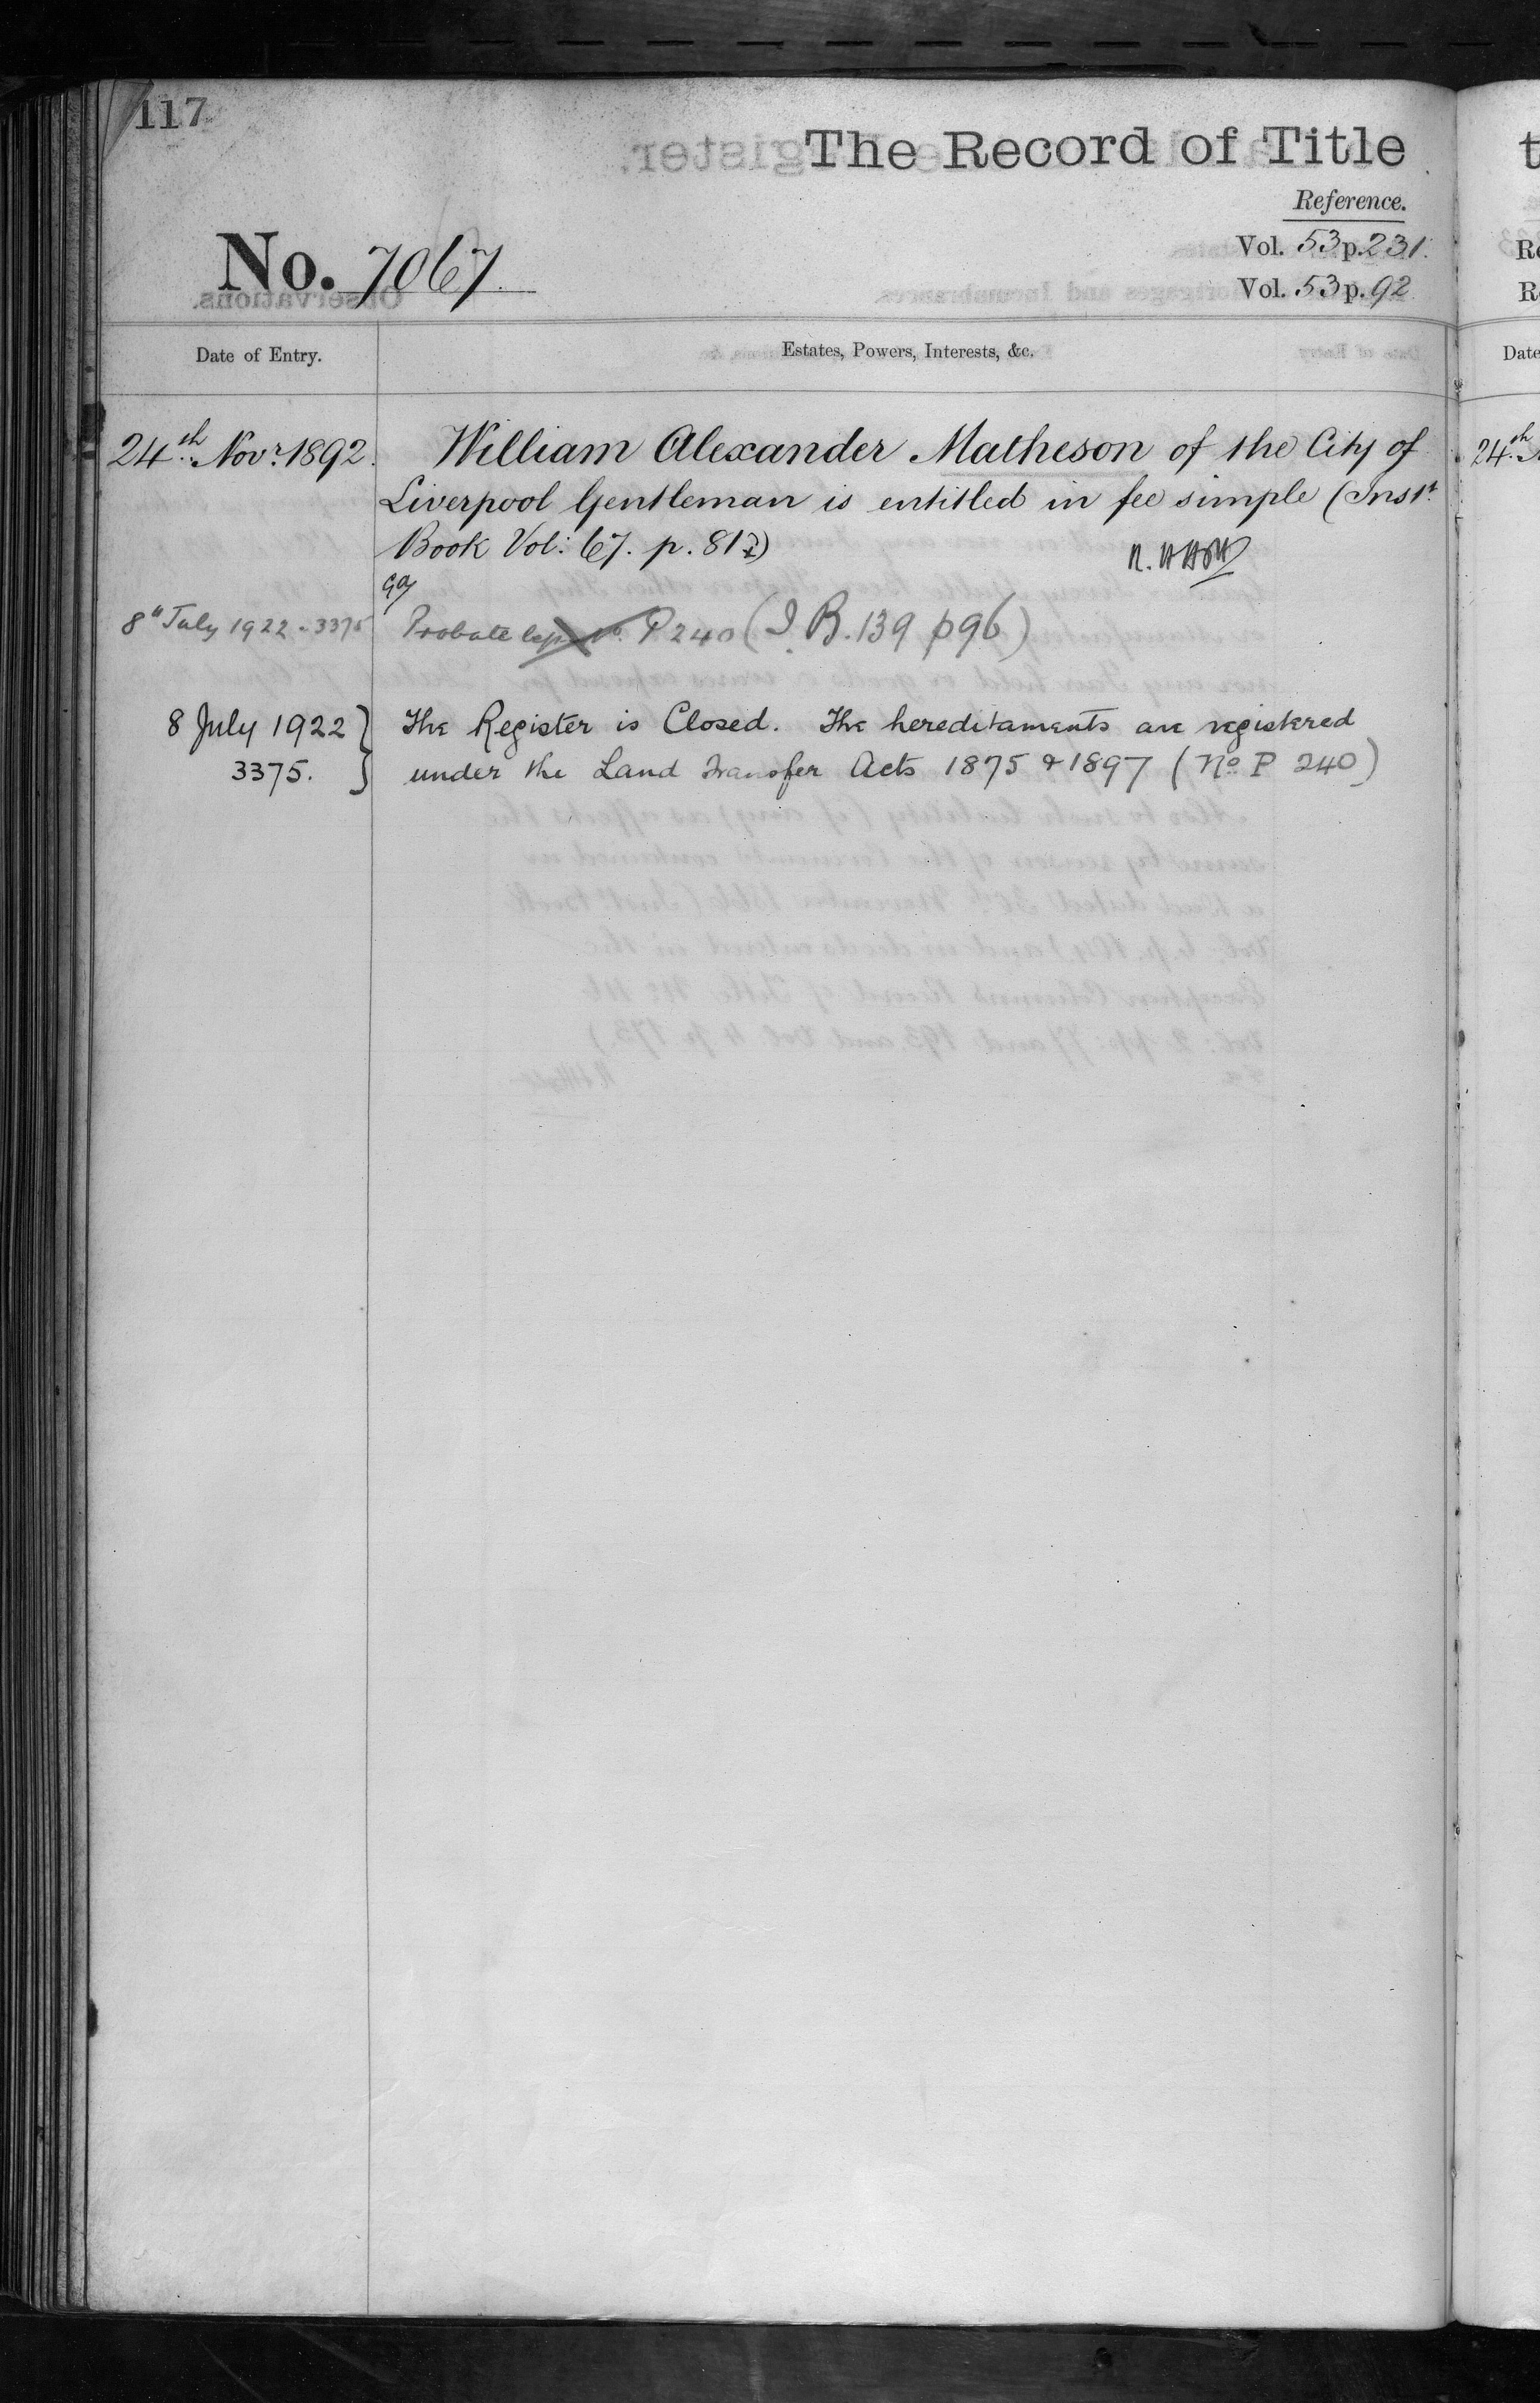 117
The Record of Title
Reference.
No. 7067.
Vol. 53 p. 231.
Vol. 53 p. 92
Date of Entry.
Estates, Powers, Interests, &c.
24th Novr. 1892. William Alexander Matheson of the City of
Liverpool Gentleman is entitled in fee simple (Inst.
Book Vol: 67. p. 81)
8th July 1922. 3375 Probate P 240 (I.B. 139 p96)
8 July 1922 } The Register is Closed. The hereditaments are registered
3375. } under the Land Transfer Acts 1875 & 1897 (No P 240)
24th